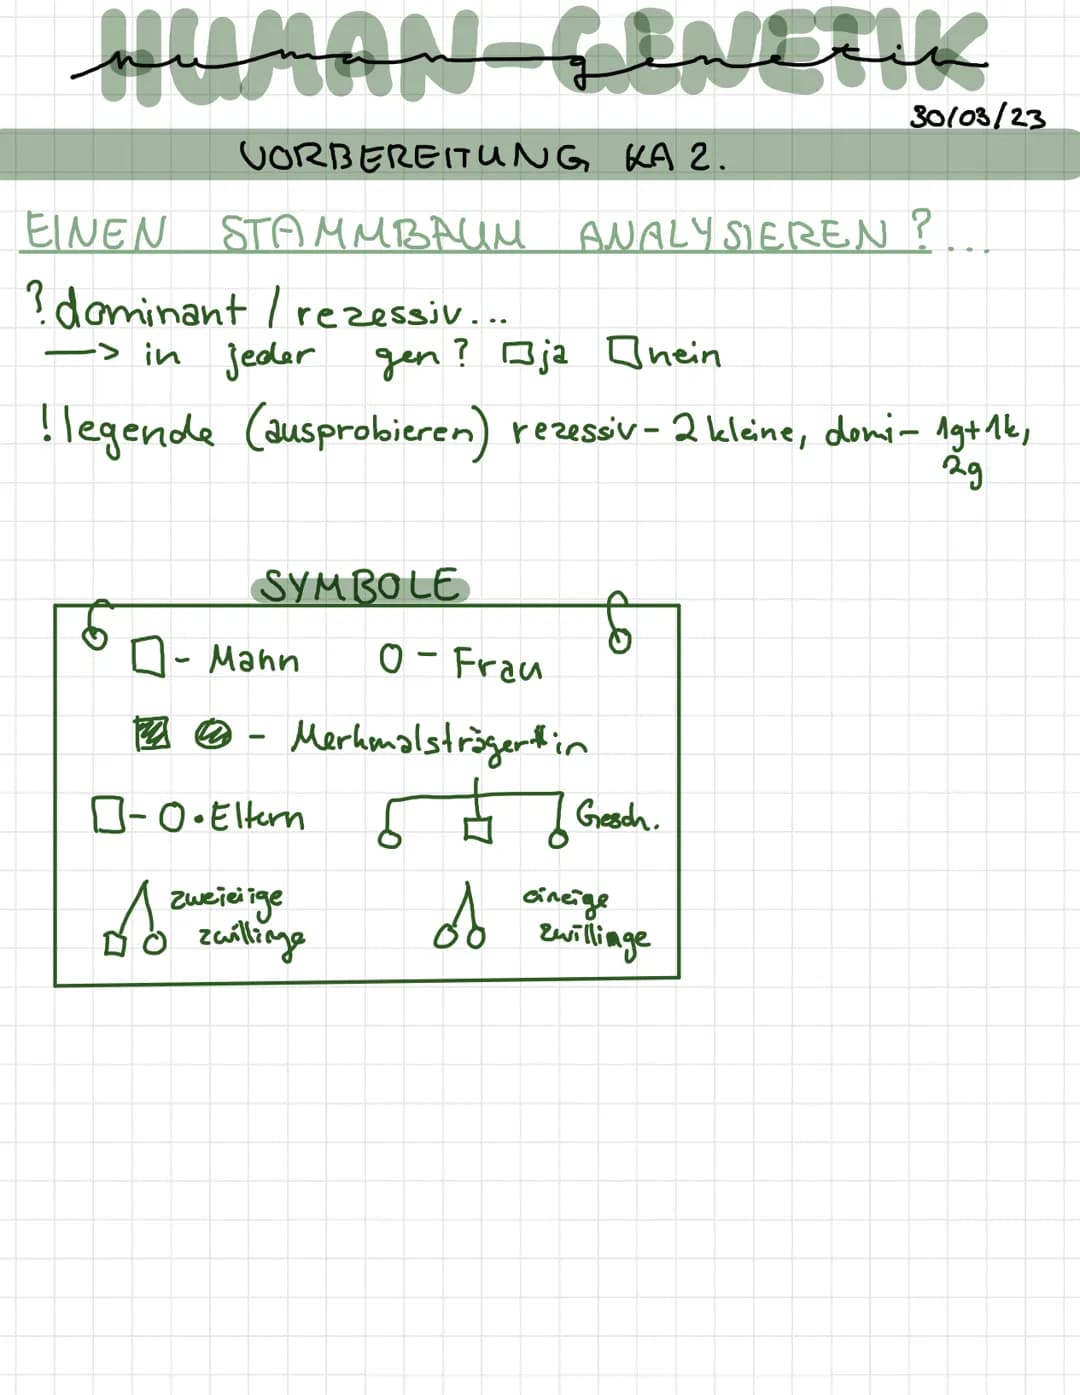 HUMAN-GENETIK
human-genetik
30/03/23
VORBEREITUNG KA 2.
EINEN STAMMBAUM ANALYSIEREN?...
? dominant / rezessiv...
—> in jeder gen? ja nein
! legende (ausprobieren) rezessiv - 2 kleine, domi - 1g+1k,
2g
SYMBOLE
- Mann O - Frau
- Merkmalsträger*in
- O • Eltern Gesch.
zweieiige
zwillinge
eineige
zwillinge